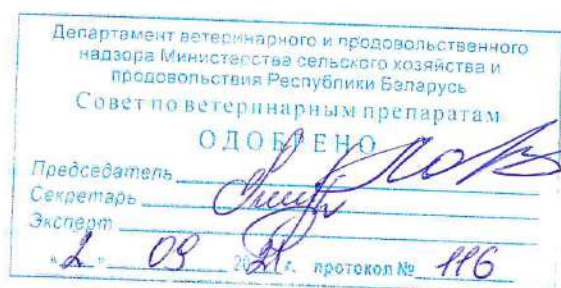 Департамент ветеринарного и продовольственного
надзора Министерства сельского хозяйства и
продовольствия Республики Беларусь
Совет по ветеринарным препаратам
ОДОБРЕНО
Председатель
Секретарь
Эксперт
"2" 09 2021 г. протокол № 116